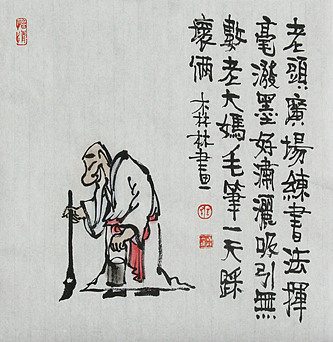 老頭廣場練書法揮
毫潑墨好瀟灑吸引無
數老大媽毛筆一天踩
壞倆 木森林書畫